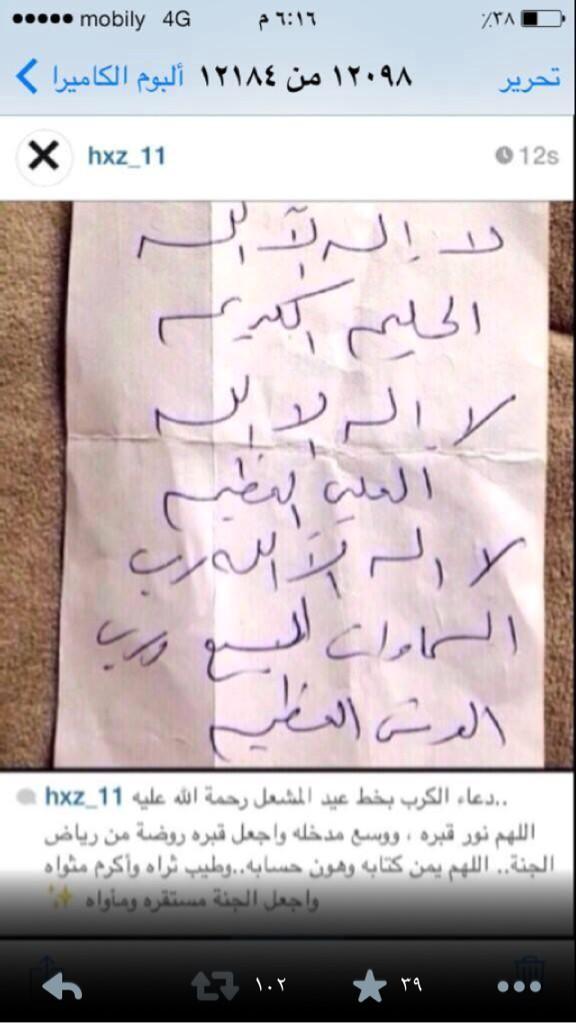 mobily 4G ٦:١٦ م ٪٣٨
ألبوم الكاميرا ١٢٠٩٨ من ١٢١٨٤ تحرير
hxz_11 12s
لا إله إلا الله
الحليم الكريم
لا إله إلا الله
العلي العظيم
لا اله إلا الله رب
السماوات السبع ورب
العرش العظيم
hxz_11 دعاء الكرب بخط عيد المشعل رحمة الله عليه..
اللهم نور قبره ، ووسع مدخله واجعل قبره روضة من رياض
الجنة.. اللهم يمن كتابه وهون حسابه..وطيب ثراه وأكرم مثواه
واجعل الجنة مستقره ومأواه ✨
١٠٢ ٣٩